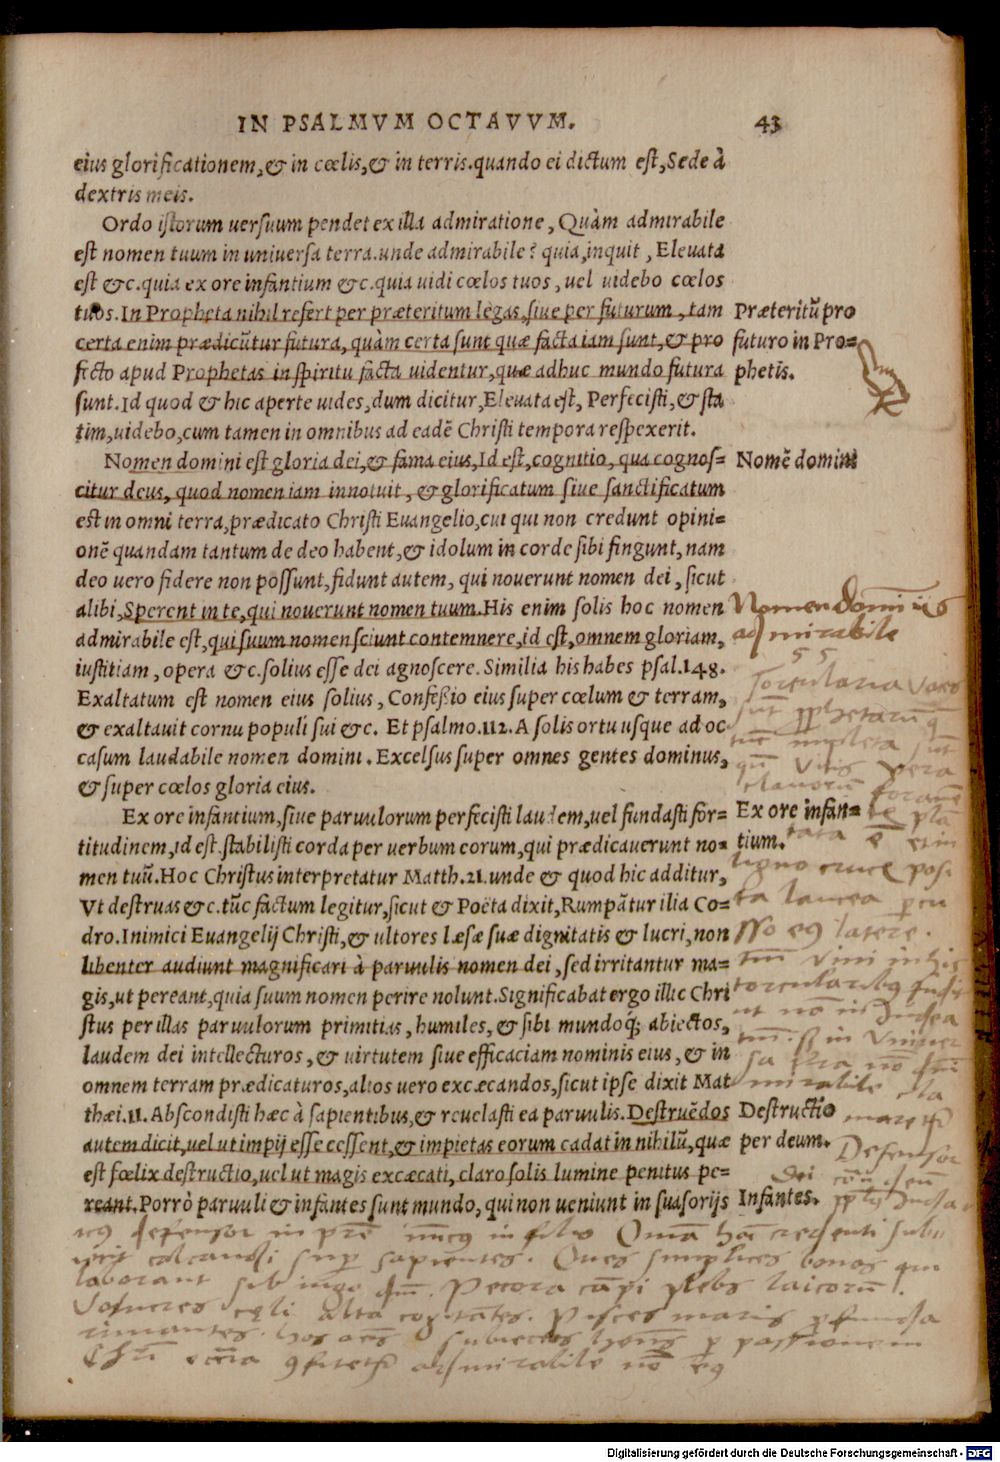 IN PSALMVM OCTAVVM. 43
eius glorificationem, & in cœlis, & in terris. quando ei dictum est, Sede à
dextris meis.
Ordo istorum uersuum pendet ex illa admiratione, Quàm admirabile
est nomen tuum in uniuersa terra. unde admirabile? quia, inquit, Eleuata
est &c. quia ex ore infantium &c. quia uidi cœlos tuos, uel uidebo cœlos
tuos. In Propheta nihil refert per præteritum legas, siue per futurum, tam
Præteritũ pro
certa enim prædicũtur futura, quàm certa sunt quæ facta iam sunt, & pro
futuro in Pro=
fecto apud Prophetas in spiritu facta uidentur, quæ adhuc mundo futura
phetis.
sunt. Id quod & hic aperte uides, dum dicitur, Eleuata est, Perfecisti, & sta
tim, uidebo, cum tamen in omnibus ad eadẽ Christi tempora respexerit.
Nomen domini est gloria dei, & fama eius, Id est, cognitio, qua cognos=
Nomẽ domini
citur deus, quod nomen iam innotuit, & glorificatum siue sanctificatum
est in omni terra, prædicato Christi Euangelio, cui qui non credunt opini=
onẽ quandam tantum de deo habent, & idolum in corde sibi fingunt, nam
deo uero fidere non possunt, fidunt autem, qui nouerunt nomen dei, sicut
alibi, Sperent in te, qui nouerunt nomen tuum. His enim solis hoc nomen
Nomen Domini
admirabile est, qui suum nomen sciunt contemnere, id est, omnem gloriam,
admirabile
iustitiam, opera &c. solius esse dei agnoscere. Similia his habes psal. 148.
Exaltatum est nomen eius solius, Confeßio eius super cœlum & terram,
& exaltauit cornu populi sui &c. Et psalmo. 112. A solis ortu usque ad oc
casum laudabile nomen domini. Excelsus super omnes gentes dominus,
& super cœlos gloria eius.
Ex ore infantium, siue paruulorum perfecisti laudem, uel fundasti for=
Ex ore infan=
titudinem, id est. stabilisti corda per uerbum eorum, qui prædicauerunt no=
tium.
men tuũ. Hoc Christus interpretatur Matth. 21. unde & quod hic additur,
Vt destruas &c. tũc factum legitur, sicut & Poëta dixit, Rumpãtur ilia Co=
dro. Inimici Euangelij Christi, & ultores læsæ suæ dignitatis & lucri, non
libenter audiunt magnificari à paruulis nomen dei, sed irritantur ma=
gis, ut pereant, quia suum nomen perire nolunt. Significabat ergo illic Chri
stus per illas paruulorum primitias, humiles, & sibi mundoq; abiectos,
laudem dei intellecturos, & uirtutem siue efficaciam nominis eius, & in
omnem terram prædicaturos, alios uero excæcandos, sicut ipse dixit Mat
thæi. 11. Abscondisti hæc à sapientibus, & reuelasti ea paruulis. Destruẽdos
Destructio
autem dicit, uel ut impij esse cessent, & impietas eorum cadat in nihilũ, quæ
per deum.
est fœlix destructio, uel ut magis excæcati, claro solis lumine penitus pe=
reant. Porrò paruuli & infantes sunt mundo, qui non ueniunt in suasorijs
Infantes.
defensor in
sapientes. Oues simplices bonos qui
laborant sub iugo Pecora campi plebs laicorum.
Volucres alta Pisces maris
admirabile